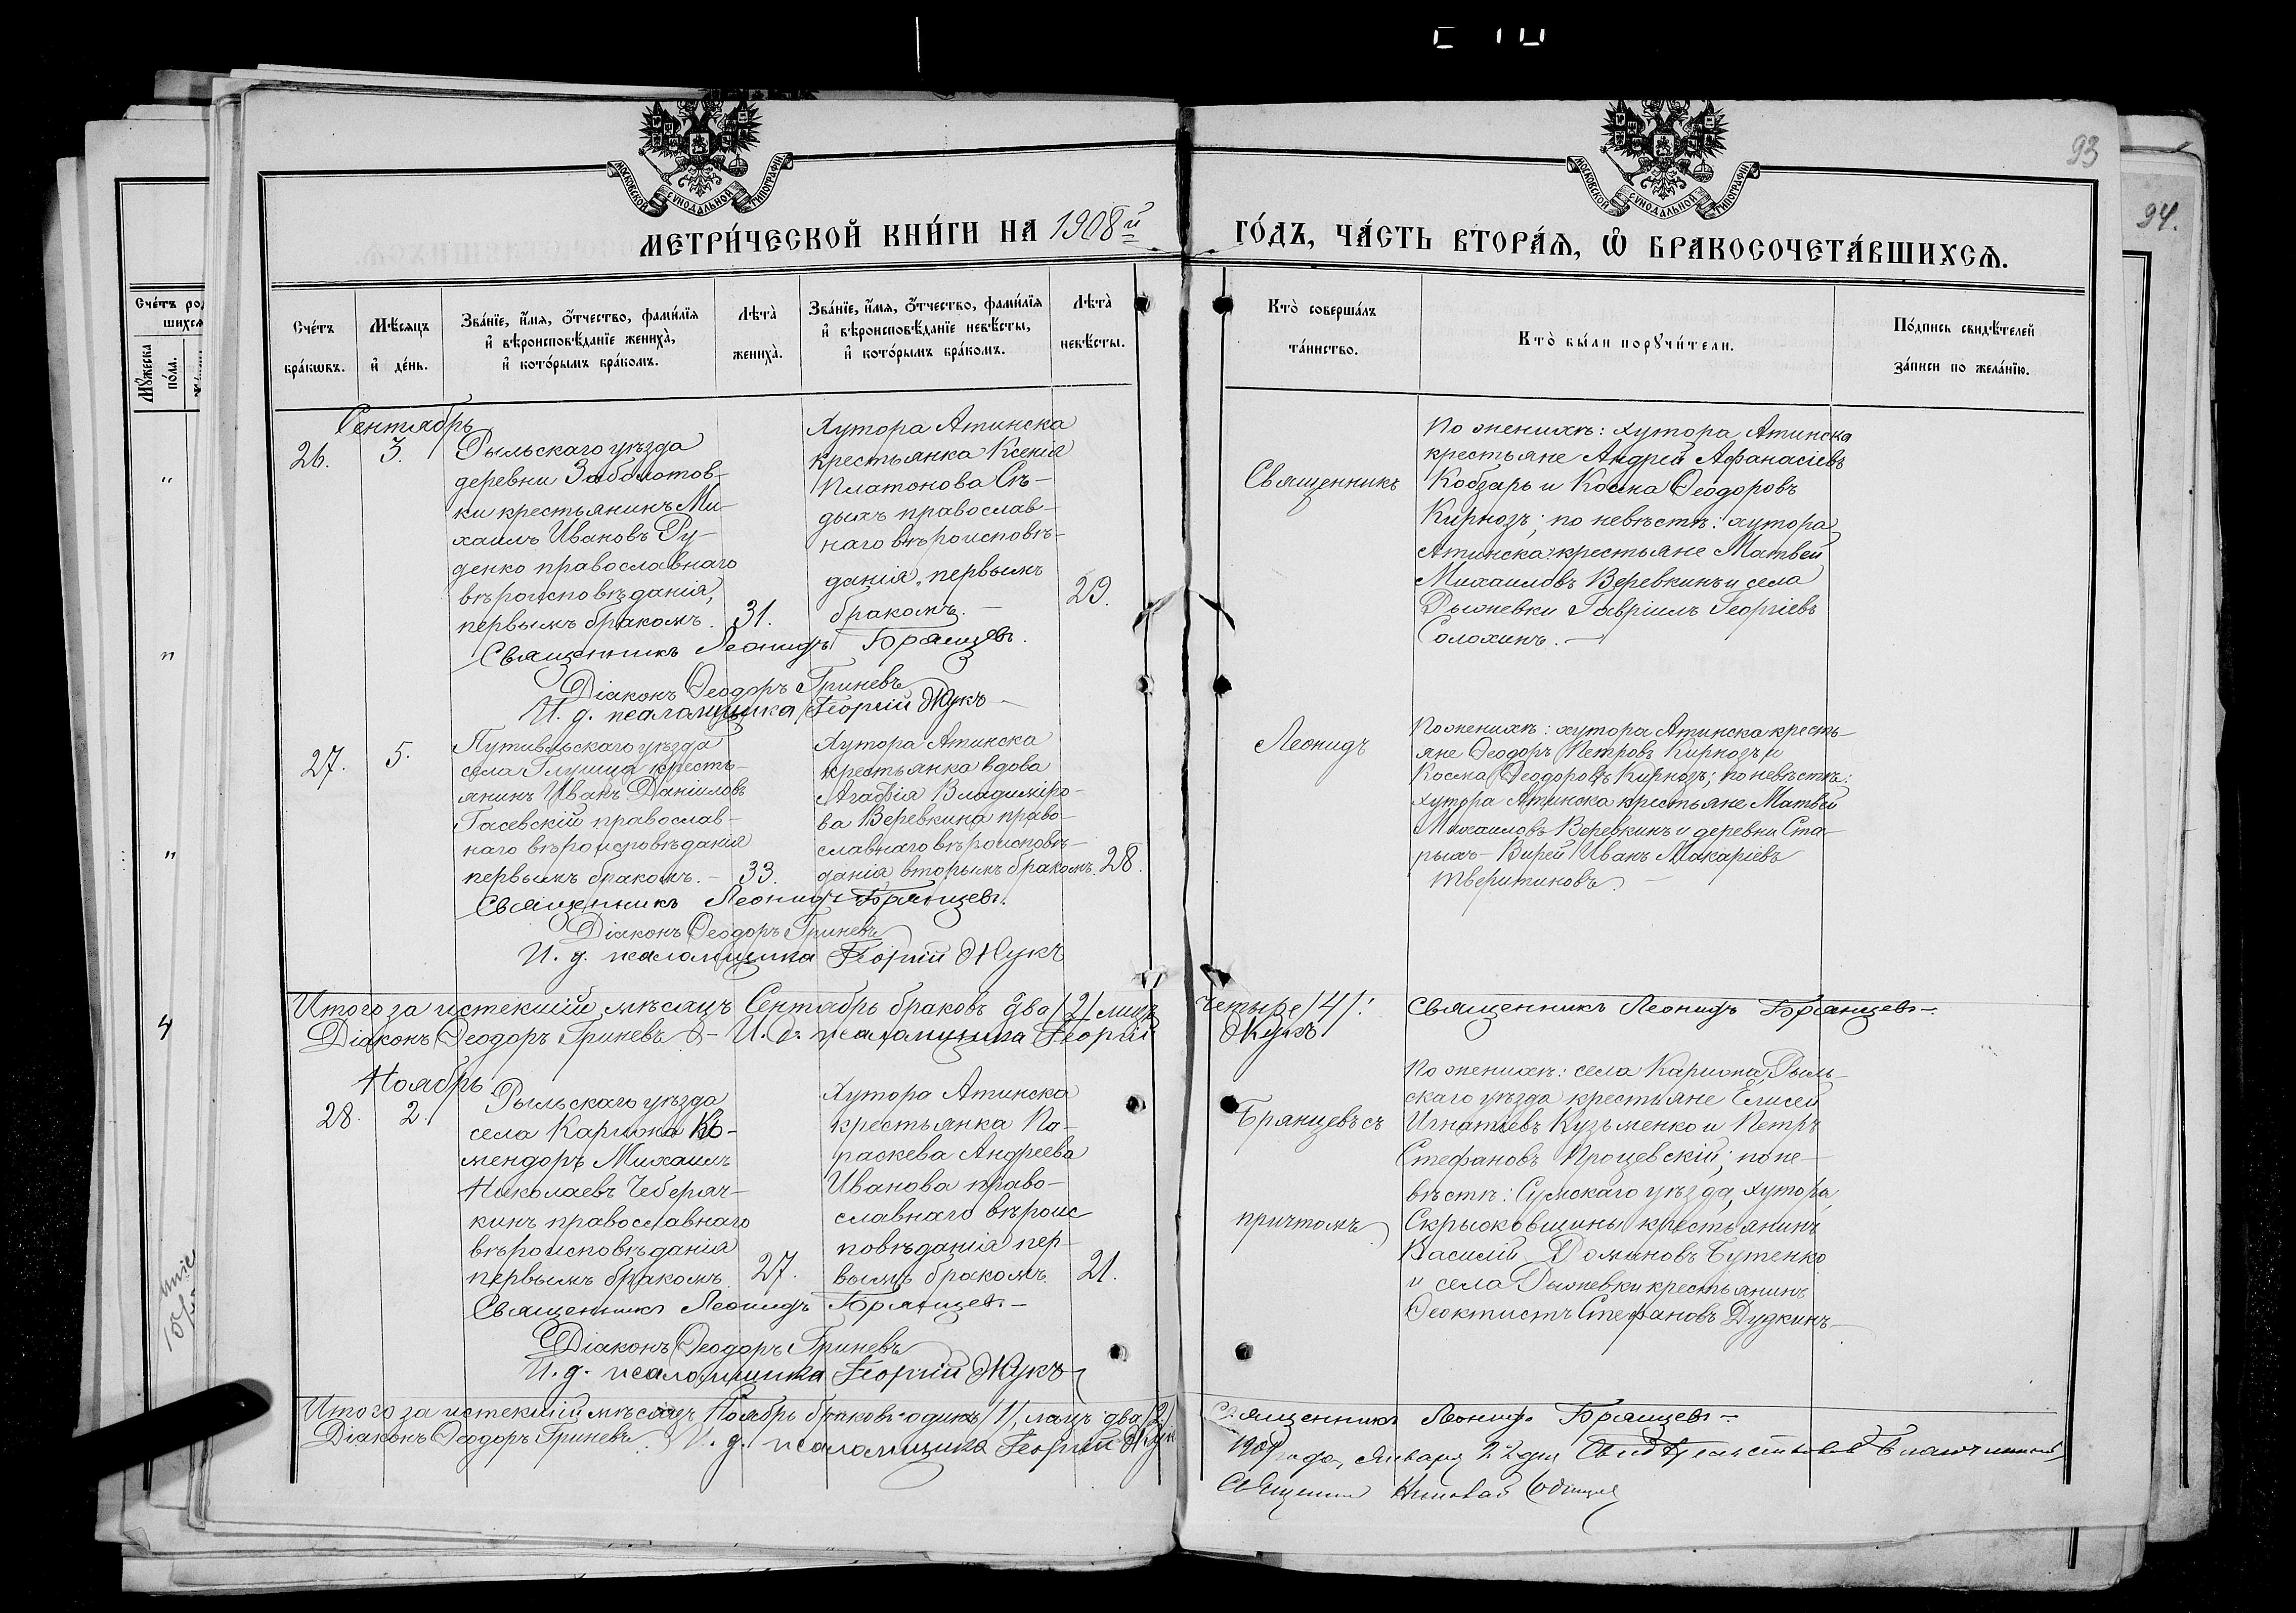 93
94.
МОСКОВСКОЙ СУНОДАЛЬНОЙ ТИПОГРАФІИ
МОСКОВСКОЙ СУНОДАЛЬНОЙ ТИПОГРАФІИ
МЕТРИ́ЧЕСКОЙ КНИ́ГИ НА 1908й
ГО́ДЪ, ЧА́СТЬ ВТОРА́Ѧ, Ѡ҆ БРАКОСОЧЕТА́ВШИХСѦ.
Сче́тъ
бра́кѡвъ.
Мѣ́сяцъ
и҆ де́нь.
Зва́нїе, и҆́мѧ, ѻ҆́тчество, фами́лїѧ
и҆ вѣроисповѣ́данїе жениха̀,
и҆ кото́рымъ бра́комъ.
Лѣта̀
жениха̀.
Зва́нїе, и҆́мѧ, ѻ҆́тчество, фами́лїѧ
и҆ вѣроисповѣ́данїе невѣ́сты,
и҆ кото́рымъ бра́комъ.
Лѣта̀
невѣ́сты.
Кто̀ соверша́лъ
та́инство.
Кто̀ бы́ли порꙋчи́тели.
По́дпись свидѣ́телей
за́писи по жела́нїю.
Сентябрь
26.
3.
Рыльскаго уѣзда
деревни Заболотов-
ки крестьянинъ Ми-
хаилъ Ивановъ Ру-
денко православнаго
вѣроисповѣданія,
первымъ бракомъ.
31.
Хутора Атинска
крестьянка Ксенія
Платонова Сѣ-
дыхъ православ-
наго вѣроисповѣ-
данія, первымъ
бракомъ. —
29.
Священникъ
По женихѣ: хутора Атинска
крестьяне Андрей Афанасіевъ
Кобзарь и Косма Ѳеодоровъ
Кирнозъ; по невѣстѣ: хутора
Атинска крестьяне Матвей
Михаиловъ Веревкинъ и села
Дюневки Гавріилъ Георгіевъ
Солохинъ. —
Священникъ Леонидъ Брянцевъ.
Діаконъ Ѳеодоръ Гриневъ
И. д. псаломщика Георгій Жукъ
27.
5.
Путивльскаго уѣзда
села Глушца кресть-
янинъ Иванъ Даніиловъ
Гасевскій православ-
наго вѣроисповѣданія
первымъ бракомъ. —
33.
Хутора Атинска
крестьянка вдова
Агафія Владиміро-
ва Веревкина право-
славнаго вѣроисповѣ-
данія вторымъ бракомъ.
28.
Леонидъ
По женихѣ: хутора Атинска кресть-
яне Ѳеодоръ Петровъ Кирнозъ и
Косма Ѳеодоровъ Кирнозъ; по невѣстѣ:
хутора Атинска крестьяне Матвей
Михаиловъ Веревкинъ и деревни Ста-
рыхъ-Вирей Иванъ Макаріевъ
Тверитиновъ.
Священникъ Леонидъ Брянцевъ.
Діаконъ Ѳеодоръ Гриневъ
И. д. псаломщика Георгій Жукъ
Итого за истекшій мѣсяцъ Сентябрь браковъ два /2/ лицъ четыре /4/. Священникъ Леонидъ Брянцевъ —
Діаконъ Ѳеодоръ Гриневъ И. д. псаломщика Георгій Жукъ
Ноябрь
28.
2.
Рыльскаго уѣзда
села Карижа Ко-
мендоръ Михаилъ
Николаевъ Чеберяч-
кинъ православнаго
вѣроисповѣданія
первымъ бракомъ
27.
Хутора Атинска
крестьянка Па-
раскева Андреева
Иванова право-
славнаго вѣроис
повѣданія пер-
вымъ бракомъ.
21.
Брянцевъ съ
причтомъ
По женихѣ: села Карижа, Рыль-
скаго уѣзда крестьяне Елисей
Игнатіевъ Кузьменко и Петръ
Стефановъ Процевскій; по не-
вѣстѣ: Сумскаго уѣзда, хутора
Скрыковщины крестьянинъ
Василій Доминовъ Бутенко
и села Дюневки крестьянинъ
Ѳеоктистъ Стефановъ Дудкинъ
Священникъ Леонидъ Брянцевъ —
Діаконъ Ѳеодоръ Гриневъ
И. д. псаломщика Георгій Жукъ
Итого за истекшій мѣсяцъ Ноябрь браковъ одинъ /1/, лицъ два /2/ Священникъ Леонидъ Брянцевъ —
Діаконъ Ѳеодоръ Гриневъ. И. д. псаломщика Георгій Жукъ
1909 года, Января 22 дня Свидѣтельствовалъ Благочинный,
Священникъ Николай
Сче́тъ
шихся
Мꙋ́жеска
по́ла.
"
"
"
4